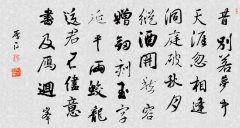 昔別若夢中
天涯忽相逢
洞庭破秋月
縱酒開愁容
贈劍刻玉字
延平兩蛟龍
送君不盡意
書及雁迴峯